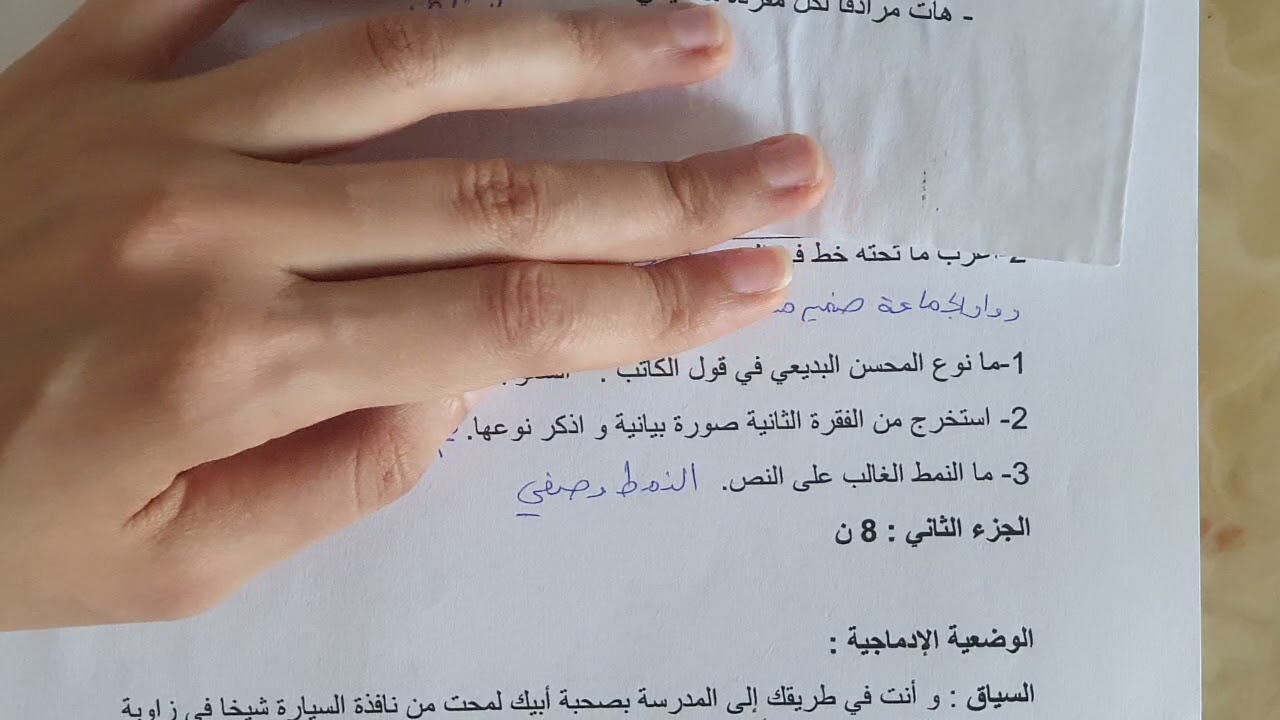 - هات مرادفا لكل
ما تحته خط
واو الجماعة ضمير
1-ما نوع المحسن البديعي في قول الكاتب :
2- استخرج من الفقرة الثانية صورة بيانية و اذكر نوعها.
3- ما النمط الغالب على النص. النمط وصفي
الجزء الثاني : 8 ن
الوضعية الإدماجية :
السياق : و أنت في طريقك إلى المدرسة بصحبة أبيك لمحت من نافذة السيارة شيخا في زاوية